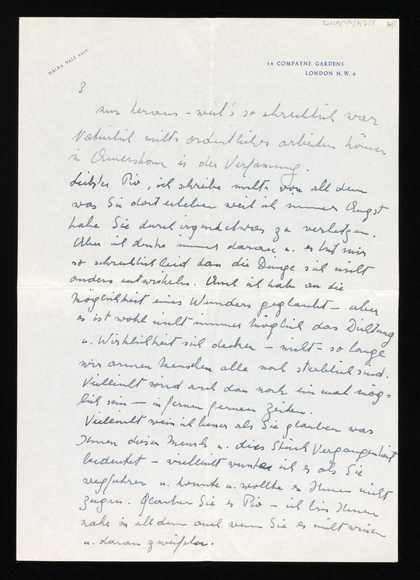 14 COMPAYNE GARDENS
LONDON N.W. 6
3
uns heraus – weil's so schrecklich war
Natürlich nichts ordentliches arbeiten können
in Amersham in der Verfassung.
Liebster Pio, ich schreibe nichts von all dem
was Sie dort erleben weil ich immer Angst
habe Sie durch irgendetwas zu verletzen.
Aber ich denke immer daran u. es tut mir
so schrecklich leid dass die Dinge sich nicht
anders entwickeln. Auch ich habe an die
Möglichkeit eines Wunders geglaubt – aber
es ist wohl nicht immer möglich das Dichtung
u. Wirklichkeit sich decken – nicht – so lange
wir armen Menschen alle noch sterblich sind.
Vielleicht wird auch das noch einmal mög-
lich sein – in fernen fernen Zeiten.
Vielleicht weiss ich besser als Sie glauben was
Ihnen dieser Mensch u. dies Stück Vergangenheit
bedeutet – vielleicht wusste ich es als Sie
wegfuhren u. konnte u. wollte es Ihnen nicht
zeigen. Glauben Sie es Pio – ich bin Ihnen
nahe in all dem auch wenn Sie es nicht wissen
u. daran zweifeln.